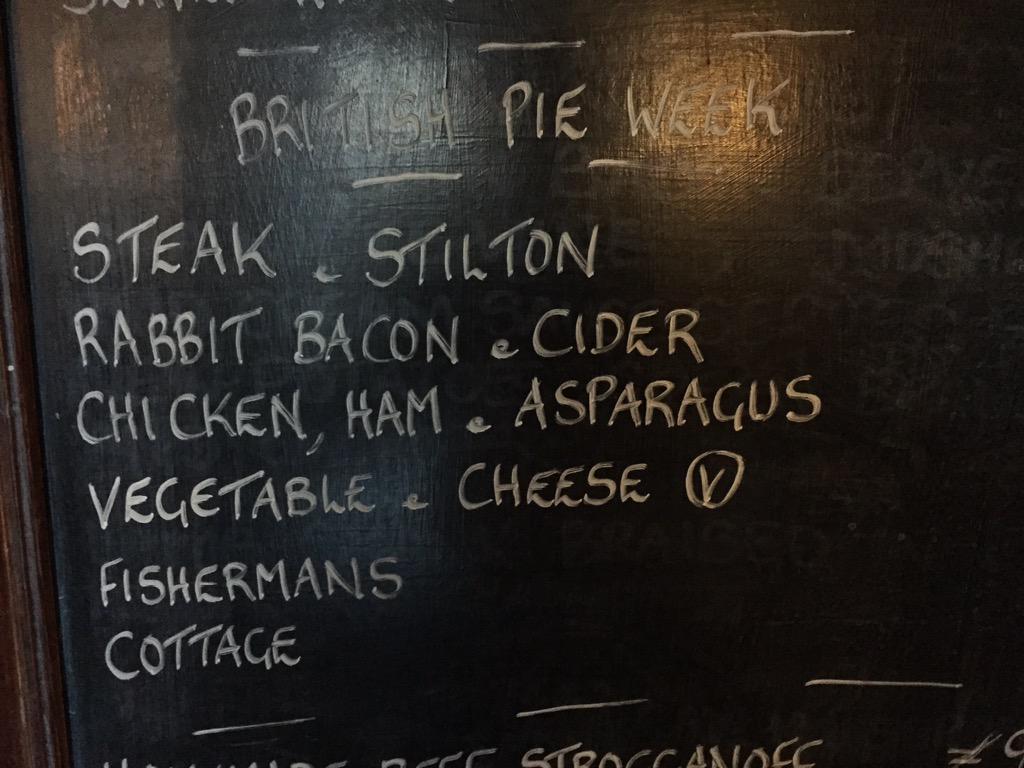 BRITISH PIE WEEK
STEAK e STILTON
RABBIT BACON e CIDER
CHICKEN, HAM e ASPARAGUS
VEGETABLE e CHEESE V
FISHERMANS
COTTAGE
HOMEMADE BEEF STROGGANOFF £9